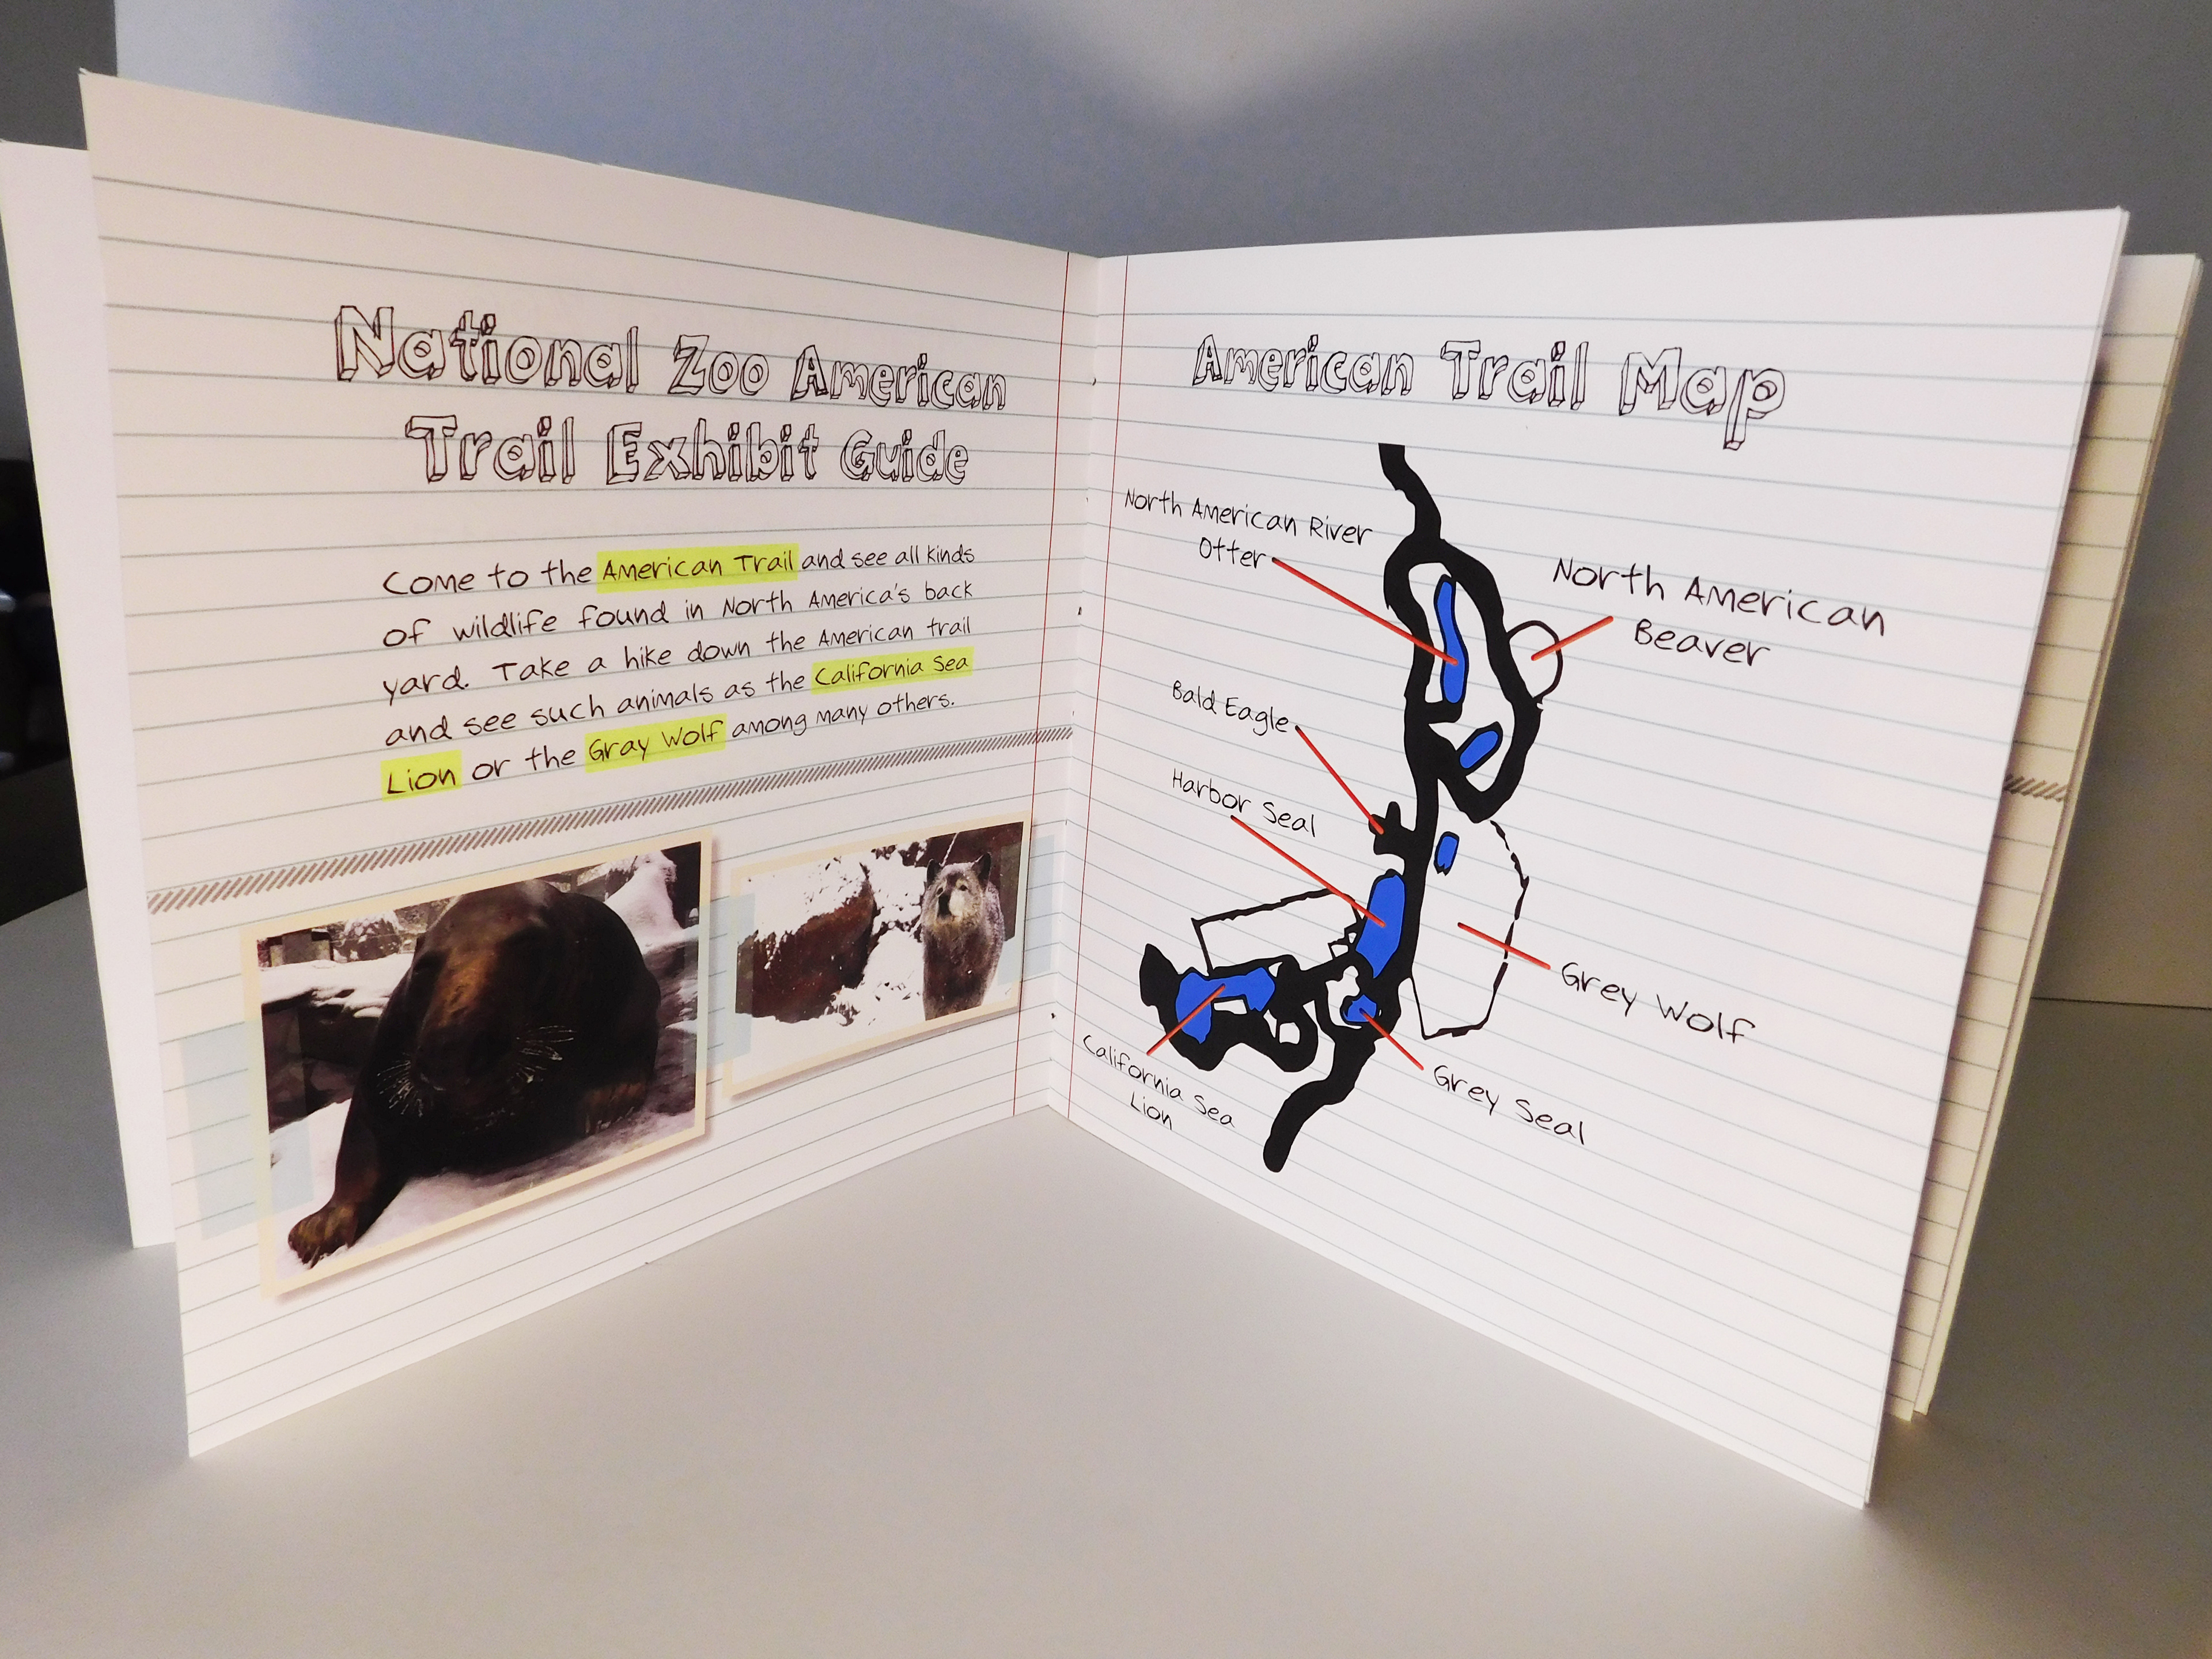 National Zoo American
Trail Exhibit Guide
Come to the American Trail and see all kinds
of wildlife found in North America's back
yard. Take a hike down the American trail
and see such animals as the California Sea
Lion or the Gray Wolf among many others.
American Trail Map
North American River
Otter
North American
Beaver
Bald Eagle
Harbor Seal
Grey Wolf
California Sea
Lion
Grey Seal